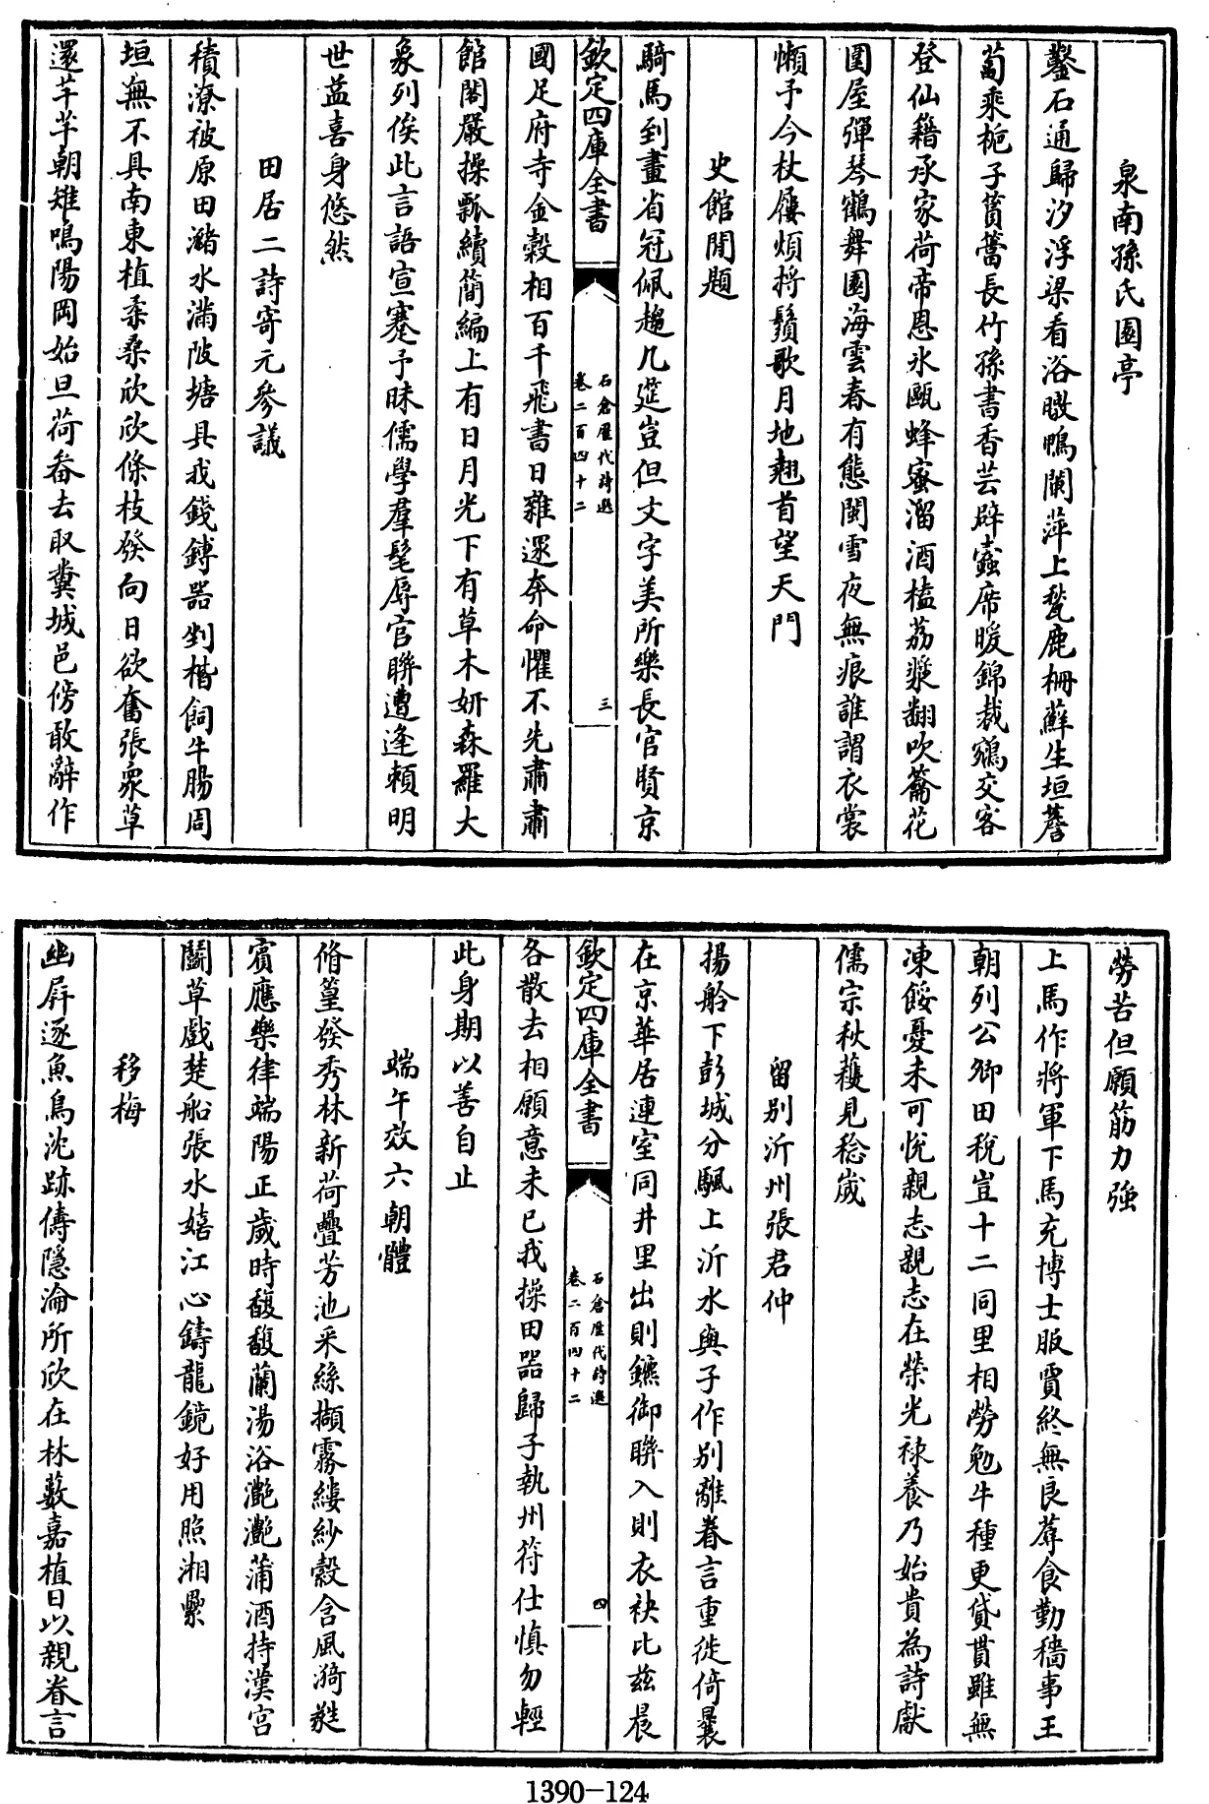 泉南孫氏園亭
鑿石通歸汐浮梁看浴暾鴨闌萍上甃鹿柵蘚生垣薝
蔔乘梔子篔簹長竹孫書香芸辟蠧席暖錦裁鵷交客
登仙籍承家荷帝恩氷甌蜂蜜溜酒榼荔漿翻吹籥花
圍屋彈琴鶴舞園海雲春有態閩雪夜無痕誰謂衣裳
懶予今杖屨煩捋鬚歌月地翹首望天門
史館閒題
騎馬到畫省冠佩趨几筵豈但文字美所樂長官賢京
欽定四庫全書
石倉歷代詩選
卷二百四十二
三
國足府寺金穀相百千飛書日雜遝奔命懼不先肅肅
館閣嚴操瓢續簡編上有日月光下有草木妍森羅大
象列俟此言語宣蹇予昧儒學羣髦辱官聯遭逢頼明
世益喜身悠然
田居二詩寄元參議
積潦被原田瀦水滿陂塘具我錢鎛器剉楷飼牛腸周
垣無不具南東植柔桑欣欣條枝發向日欲奮張衆草
還芊芊朝雉鳴陽岡始旦荷畚去取糞城邑傍敢辭作
勞苦但願筋力強
上馬作將軍下馬充博士服賈終無良蓐食勤穡事王
朝列公卿田稅豈十二同里相勞勉牛種更貸貰雖無
凍餒憂未可悅親志親志在榮光祿養乃始貴為詩獻
儒宗秋穫見稔歲
留別沂州張君仲
揚舲下彭城分颿上沂水與子作別離眷言重徙倚曩
在京華居連室同井里出則鑣御聯入則衣袂比兹晨
欽定四庫全書
石倉歷代詩選
卷二百四十二
四
各散去相願意未已我操田器歸子執州符仕慎勿輕
此身期以善自止
端午效六朝體
脩篁發秀林新荷疊芳池采絲擷霧縷紗縠含風漪甤
賓應樂律端陽正歲時馥馥蘭湯浴灔灔蒲酒持漢宮
鬭草戲楚船張水嬉江心鑄龍鏡好用照湘纍
移梅
幽屏逐魚鳥沈跡儔隱淪所欣在林藪嘉植日以親眷言
1390-124